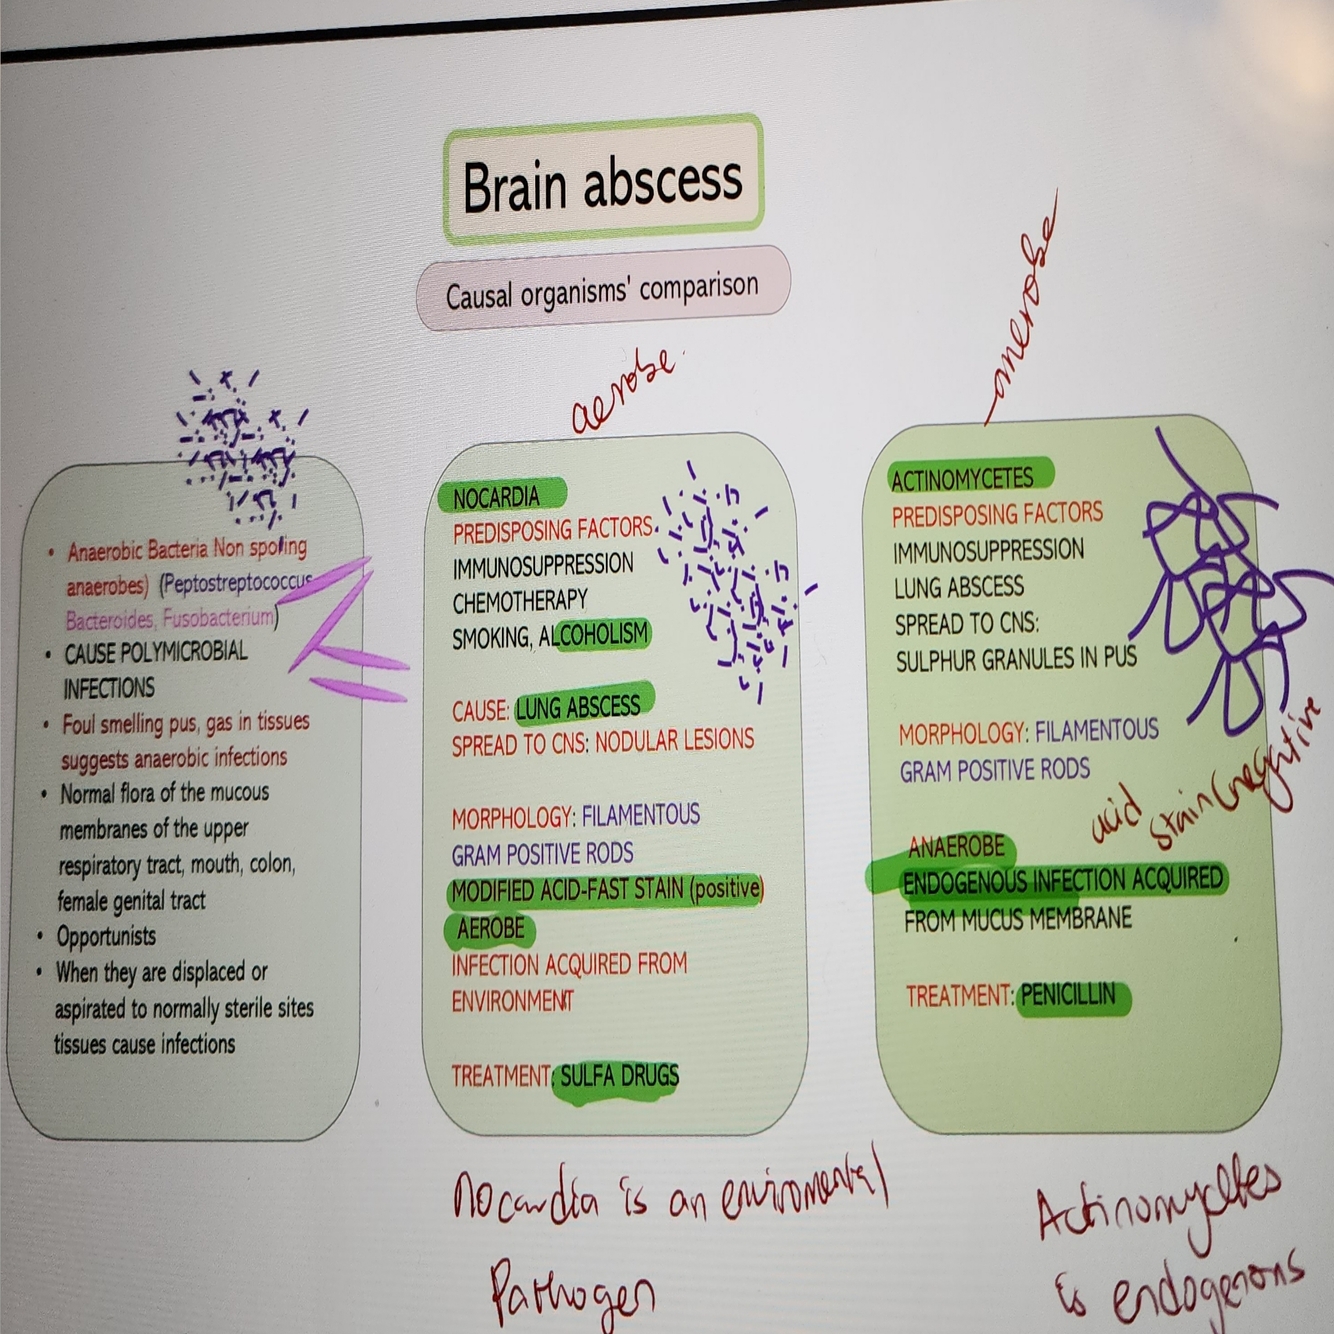 Brain abscess
Causal organisms' comparison
aerobe
anerobe
• Anaerobic Bacteria Non sporing
anaerobes) (Peptostreptococcus
Bacteroides, Fusobacterium)
• CAUSE POLYMICROBIAL
INFECTIONS
• Foul smelling pus, gas in tissues
suggests anaerobic infections
• Normal flora of the mucous
membranes of the upper
respiratory tract, mouth, colon,
female genital tract
• Opportunists
• When they are displaced or
aspirated to normally sterile sites
tissues cause infections
NOCARDIA
PREDISPOSING FACTORS:
IMMUNOSUPPRESSION
CHEMOTHERAPY
SMOKING, ALCOHOLISM
CAUSE: LUNG ABSCESS
SPREAD TO CNS: NODULAR LESIONS
MORPHOLOGY: FILAMENTOUS
GRAM POSITIVE RODS
MODIFIED ACID-FAST STAIN (positive)
AEROBE
INFECTION ACQUIRED FROM
ENVIRONMENT
TREATMENT: SULFA DRUGS
Nocardia is an enviromental
Pathogen
ACTINOMYCETES
PREDISPOSING FACTORS
IMMUNOSUPPRESSION
LUNG ABSCESS
SPREAD TO CNS:
SULPHUR GRANULES IN PUS
MORPHOLOGY: FILAMENTOUS
GRAM POSITIVE RODS
acid stain (negative
ANAEROBE
ENDOGENOUS INFECTION ACQUIRED
FROM MUCUS MEMBRANE
TREATMENT: PENICILLIN
Actinomycetes
is endogenous